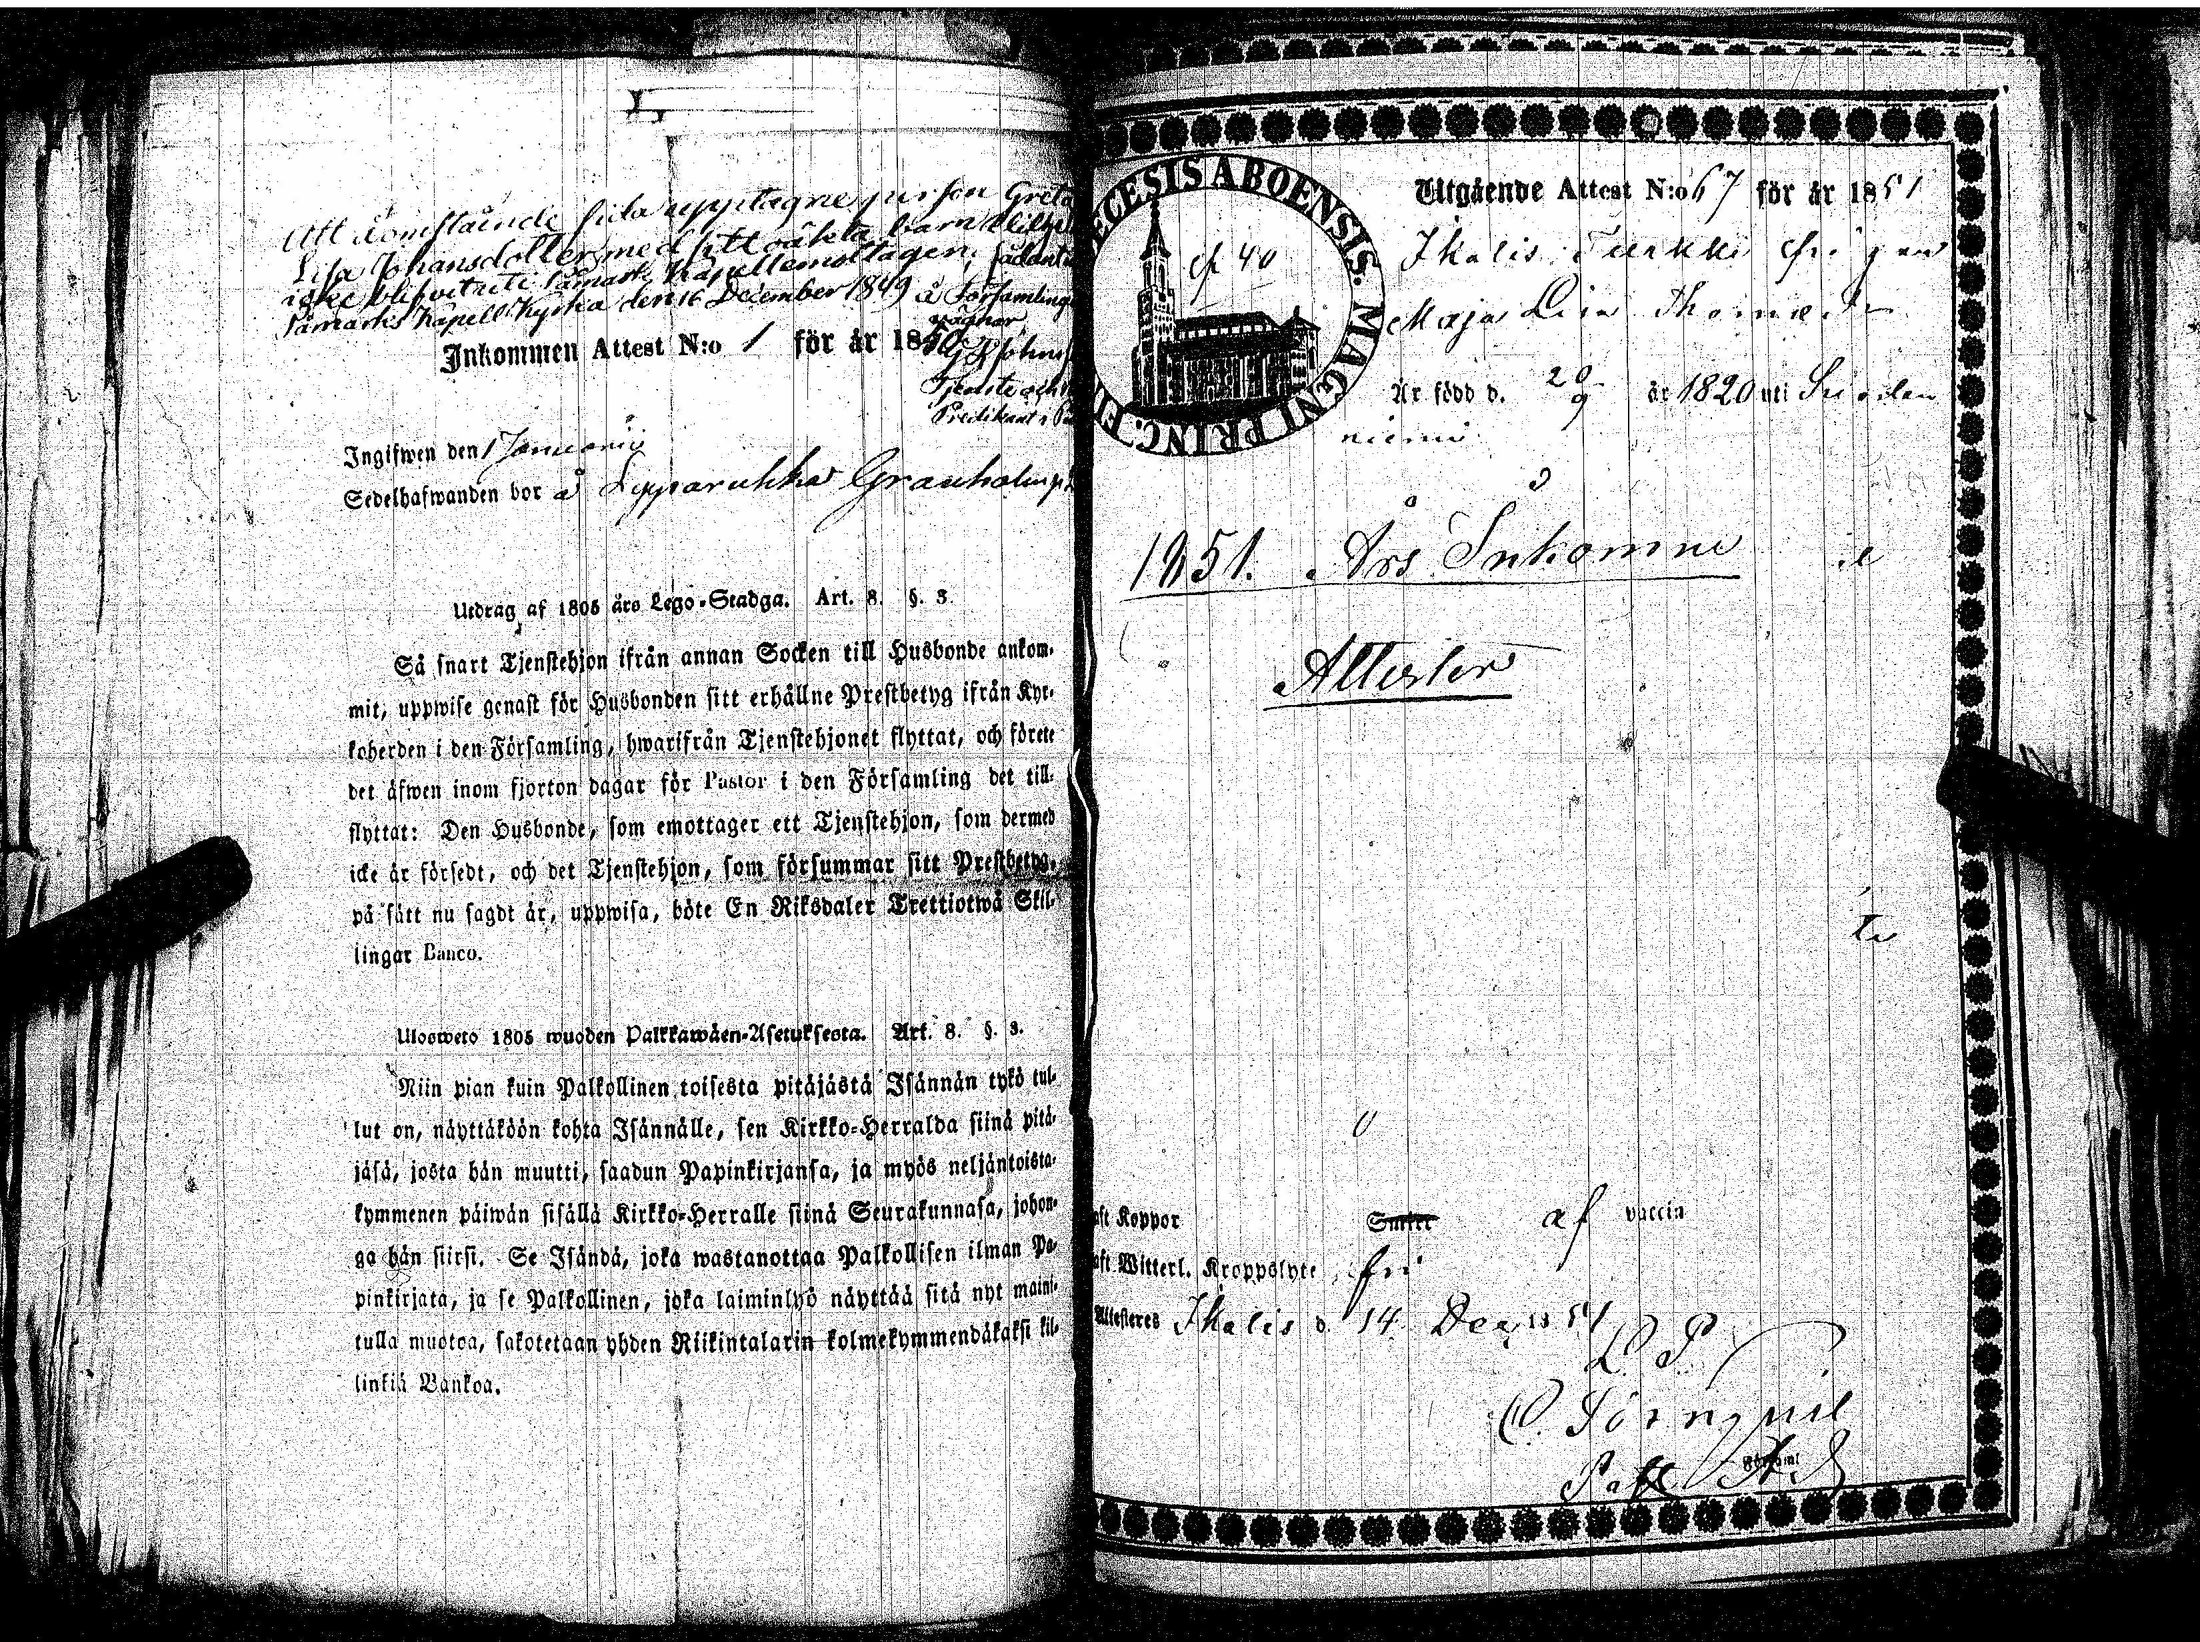 Att Omstående sida upptagne person Greta
Lisa Johansdotter med sitt oäkta barn
icke blifvit uti Påmark Kapell emottagen, sådant
Påmarks Kapell Kyrka den 16 December 1849 å Församlingens
vägnar
Inkommen Attest N:o 1 för år 1850
Predikant i
Ingifwen den 1 Januarii
Sedelhafwanden bor å Lepparukka Granholm
Utdrag af 1805 års Lego-Stadga. Art. 8. §. 3.
Så snart Tjenstehjon ifrån annan Socken till Husbonde ankom-
mit, uppwise genast för Husbonden sitt erhållne Prestbetyg ifrån Kyr-
koherden i den Församling, hwarifrån Tjenstehjonet flyttat, och förete
det äfwen inom fjorton dagar för Pastor i den Församling det till-
flyttat: Den Husbonde, som emottager ett Tjenstehjon, som dermed
icke är försedt, och det Tjenstehjon, som försummar sitt Prestbetyg,
på sätt nu sagdt är, uppwisa, böte En Riksdaler Trettiotwå Skil-
lingar Banco.
Ulosweto 1805 wuoden Palkkawäen-Asetuksesta. Art. 8. §. 3.
Niin pian kuin Palkollinen toisesta pitäjästä Isännän tykö tul-
lut on, näyttäköön kohta Isännälle, sen Kirkko-Herralda siinä pitä-
jäsä, josta hän muutti, saadun Papinkirjansa, ja myös neljäntoista-
kymmenen päiwän sisällä Kirkko-Herralle siinä Seurakunnasa, johon-
ga hän siirsi. Se Isändä, joka wastanottaa Palkollisen ilman Pa-
pinkirjata, ja se Palkollinen, joka laiminlyö näyttää sitä nyt maini-
tulla muotoa, sakotetaan yhden Riikintalarin kolmekymmendäkaksi kil-
linkiä Bankoa.
ECESIS ABOENSIS. MAGNI PRINC. FI
cf 40
Utgående Attest N:o 67 för år 1851
Ikalis
Maja Lisa Thomædr
Är född d. 20/9 år 1820 uti
niemi
1851. Års Inkomne
Attester
aft Koppor Smitt af vaccin
aft Witterl. Kroppslyte fri
Attesteres Ikalis d. 14 Dec 1851
L. P.
Törnqvist
Församl